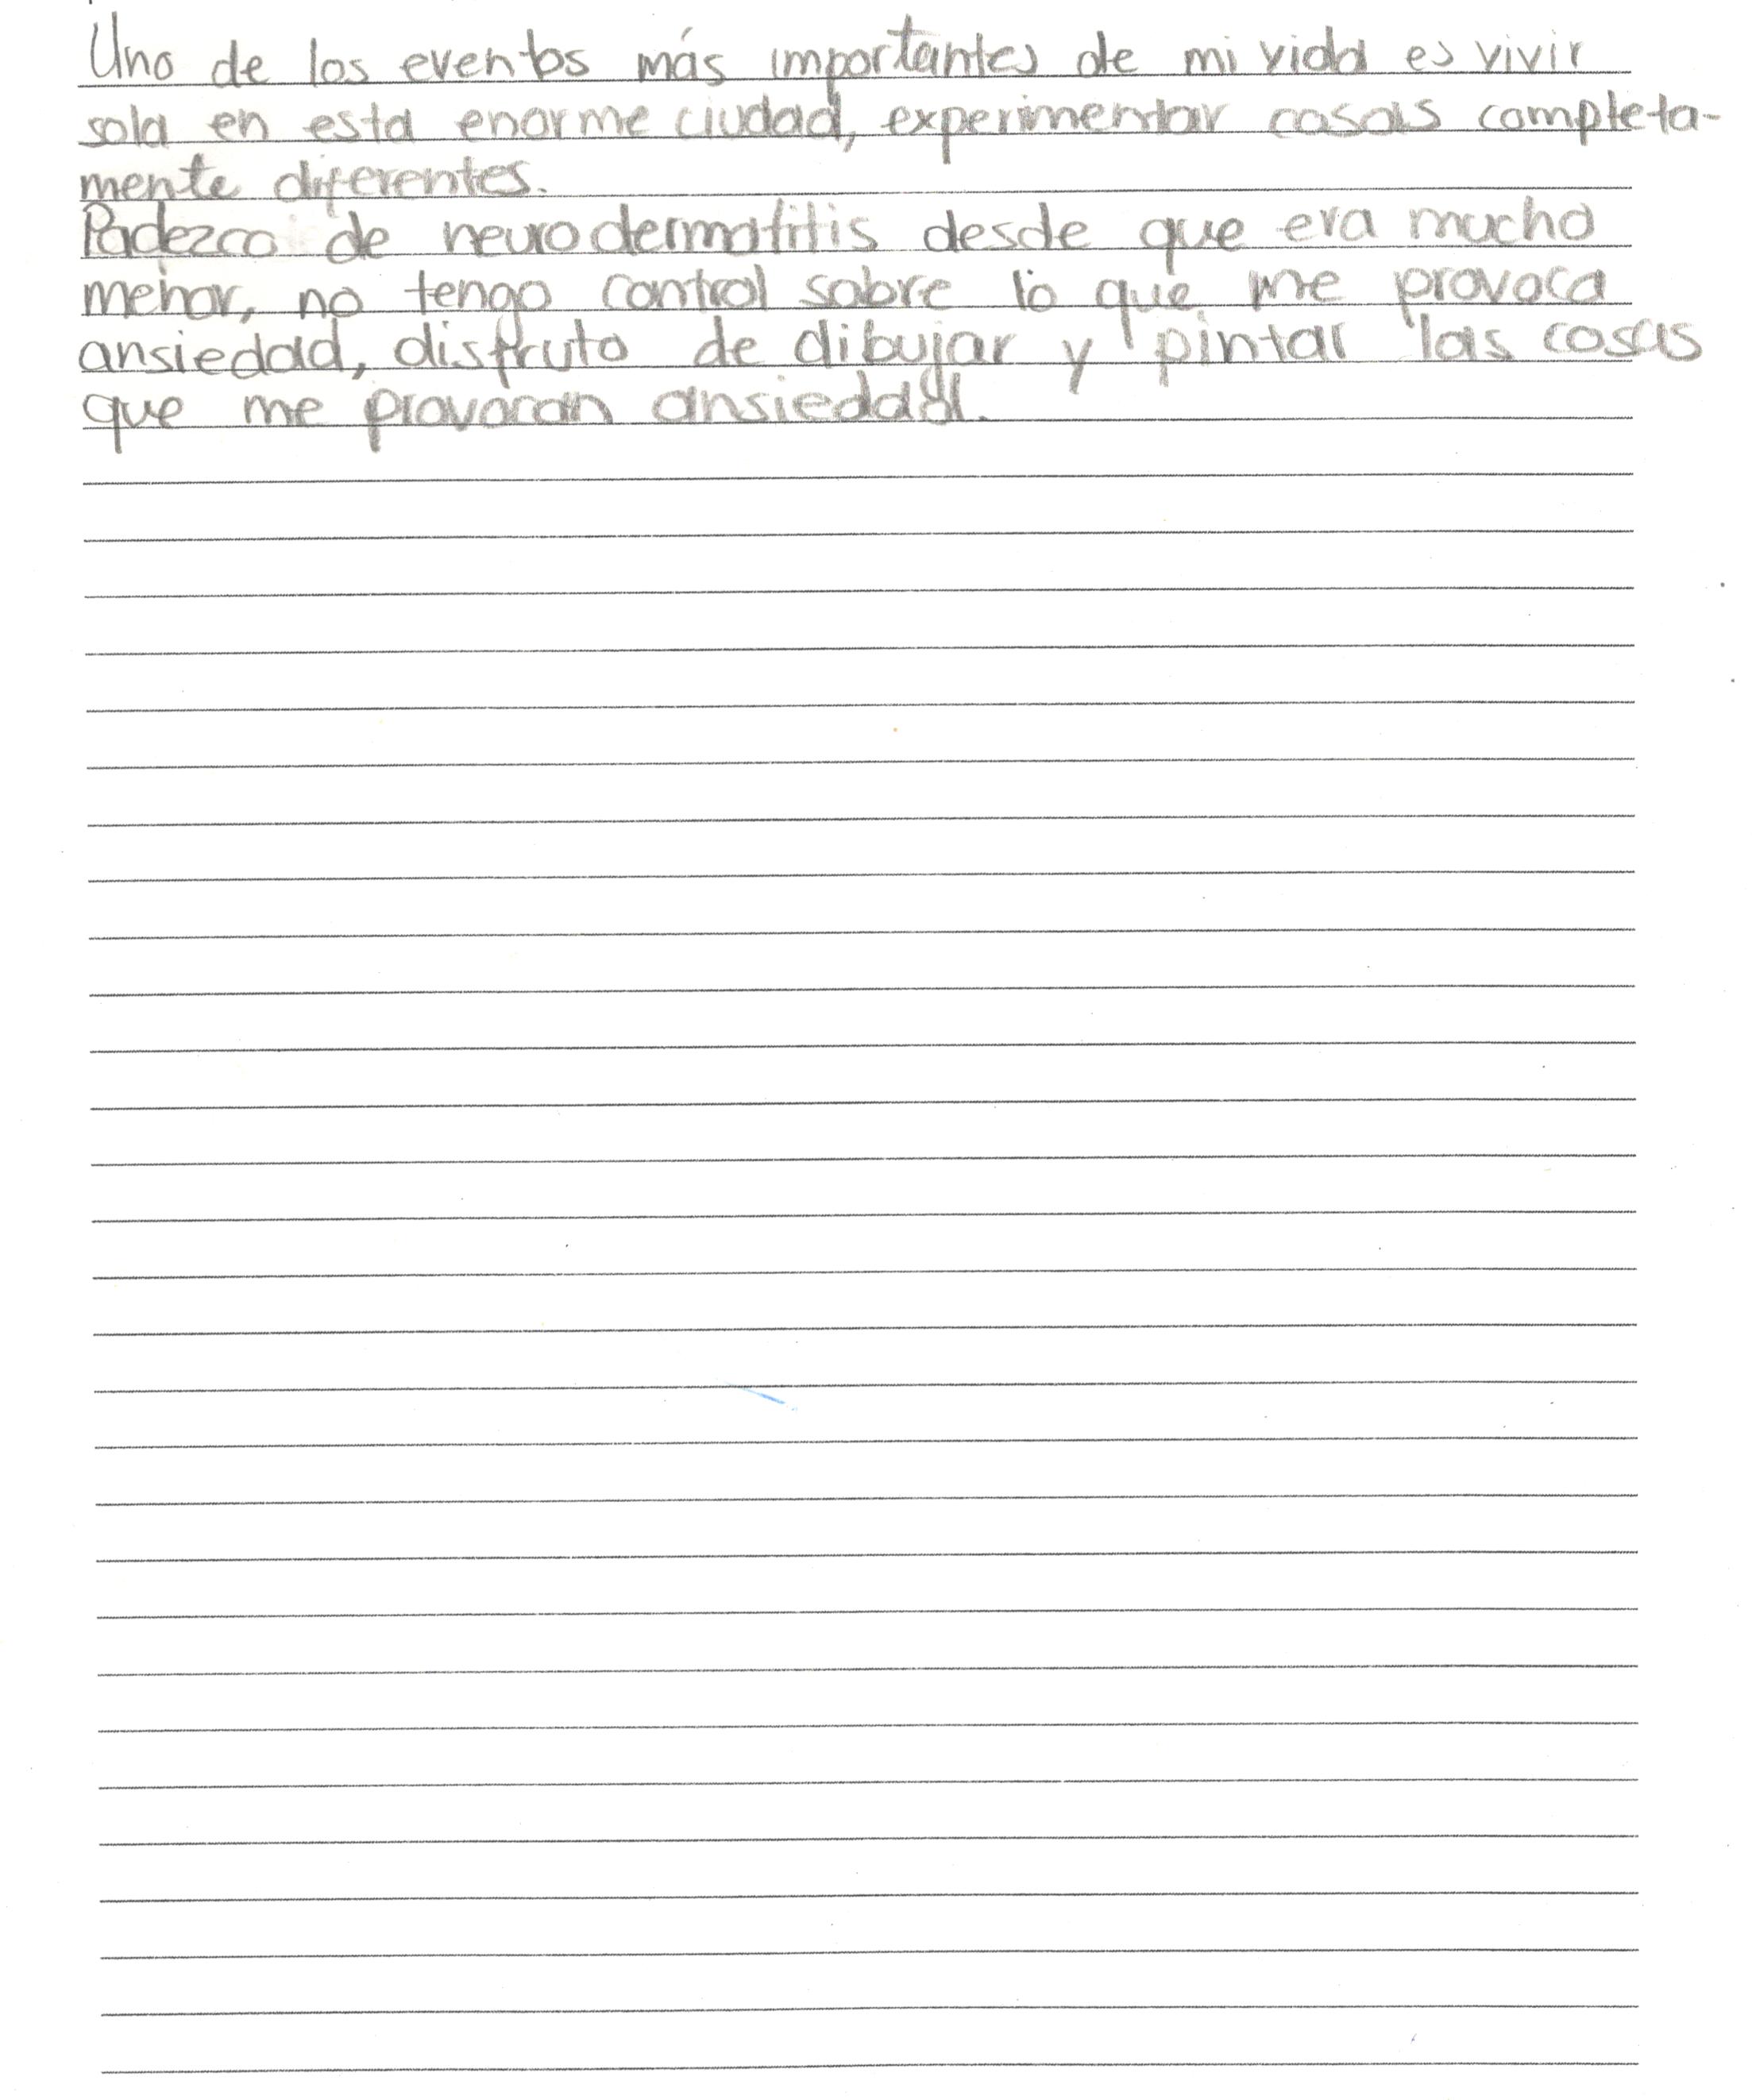 Uno de los eventos más importantes de mi vida es vivir
sola en esta enorme ciudad, experimentar cosas completa-
mente diferentes.
Padezco de neurodermatitis desde que era mucho
menor, no tengo control sobre lo que me provoca
ansiedad, disfruto de dibujar y pintar las cosas
que me provocan ansiedad.